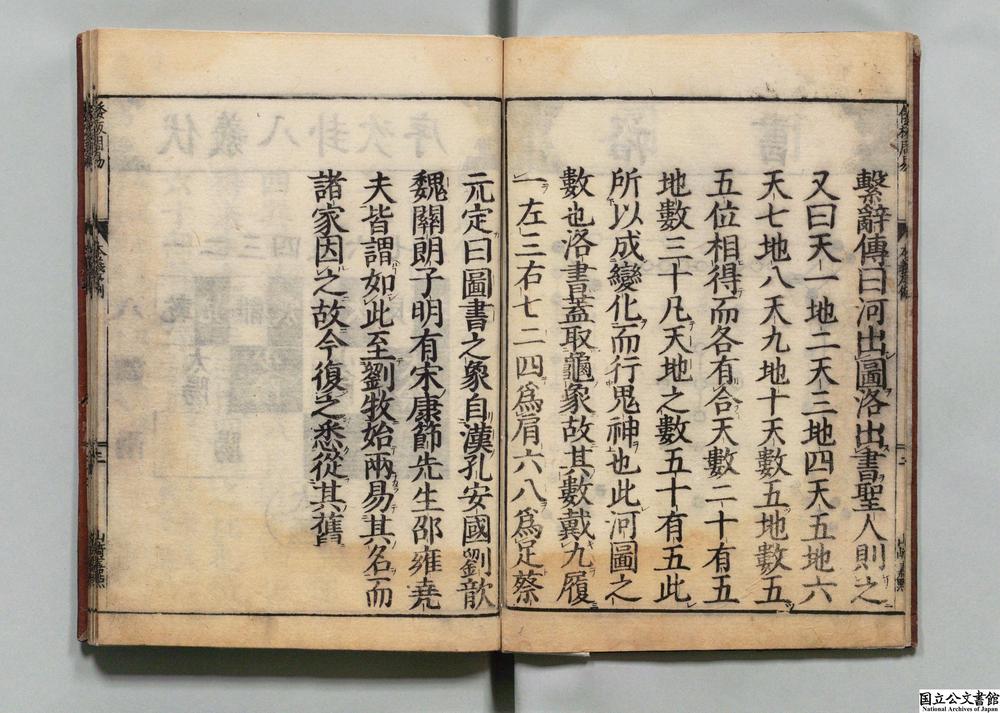 繫辭傳曰河出圖洛出書聖人則之
又曰天一地二天三地四天五地六
天七地八天九地十天數五地數五
五位相得而各有合天數二十有五
地數三十凡天地之數五十有五此
所以成變化而行鬼神也此河圖之
數也洛書蓋取龜象故其數戴九履
一左三右七二四爲肩六八爲足蔡
元定曰圖書之象自漢孔安國劉歆
魏關朗子明有宋康節先生邵雍堯
夫皆謂如此至劉牧始兩易其名而
諸家因之故今復之悉從其舊
国立公文書館
National Archives of Japan